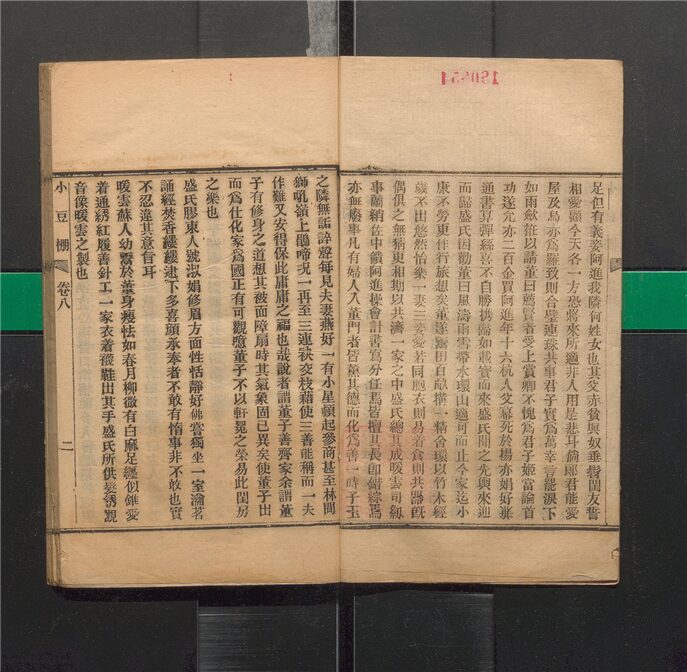 足但有義妾阿進我隣何姓女也其父亦貧與奴垂髫閨友誓
相愛顧今天各一方恐將來所適非人用是悲耳倘郎君能愛
屋及烏亦為羅致則合璧連珠共事君子實為萬幸言罷淚下
如雨斂衽以請董曰薦賢者受上賞卿不愧為君子姬當論首
功遂宛亦二百金買阿進年十六杭人父幕死於揚亦娟好兼
通書算彈絲喜不自勝携歸如載寶而來盛氏聞之先輿來迎
而歸盛氏因勸董曰風濤雨雪帶水環山適可而止今家迄小
康不勞更作行旅想矣董遂置田百畝構一精舍環以竹木經
歲不出悠然怡樂一妻三妾愛若同胞衣則易着食則共器既
偶俱之無病更相期以共濟一家之中盛氏總其成暖雲司紉
事蘭綃佐中饋阿進操會計書寫分任焉皆擅其長即錯綜焉
亦無廢事凡有婦人入董門者皆薰其德而化為善一時子玉
之隣無詬誶聲每見夫妻燕好一有小星頓起參商甚至林間
獅吼嶺上鵑啼況一再至三連袂交枝藉使三善能稱而一夫
作難又安得保此庸庸之福也哉說者謂董子善齊家余謂董
子有修身之道想其被面障扇時其氣象固已異矣使董子出
而為仕化家為國正有可觀噫董子不以軒冕之榮易此閨房
之樂也
盛氏膠東人號淑娟修眉方面性恬靜好佛嘗獨坐一室瀹茗
誦經焚香縷縷逮下多喜顏承奉者不敢有惰事非不敢也實
不忍違其意旨耳
暖雲蘇人幼鬻於董身瘦怯如春月柳微有白麻足纒似錐愛
着通綉紅履善針工一家衣着襪鞋出其手盛氏所供髮綉觀
音像暖雲之製也
小豆棚
卷八
二